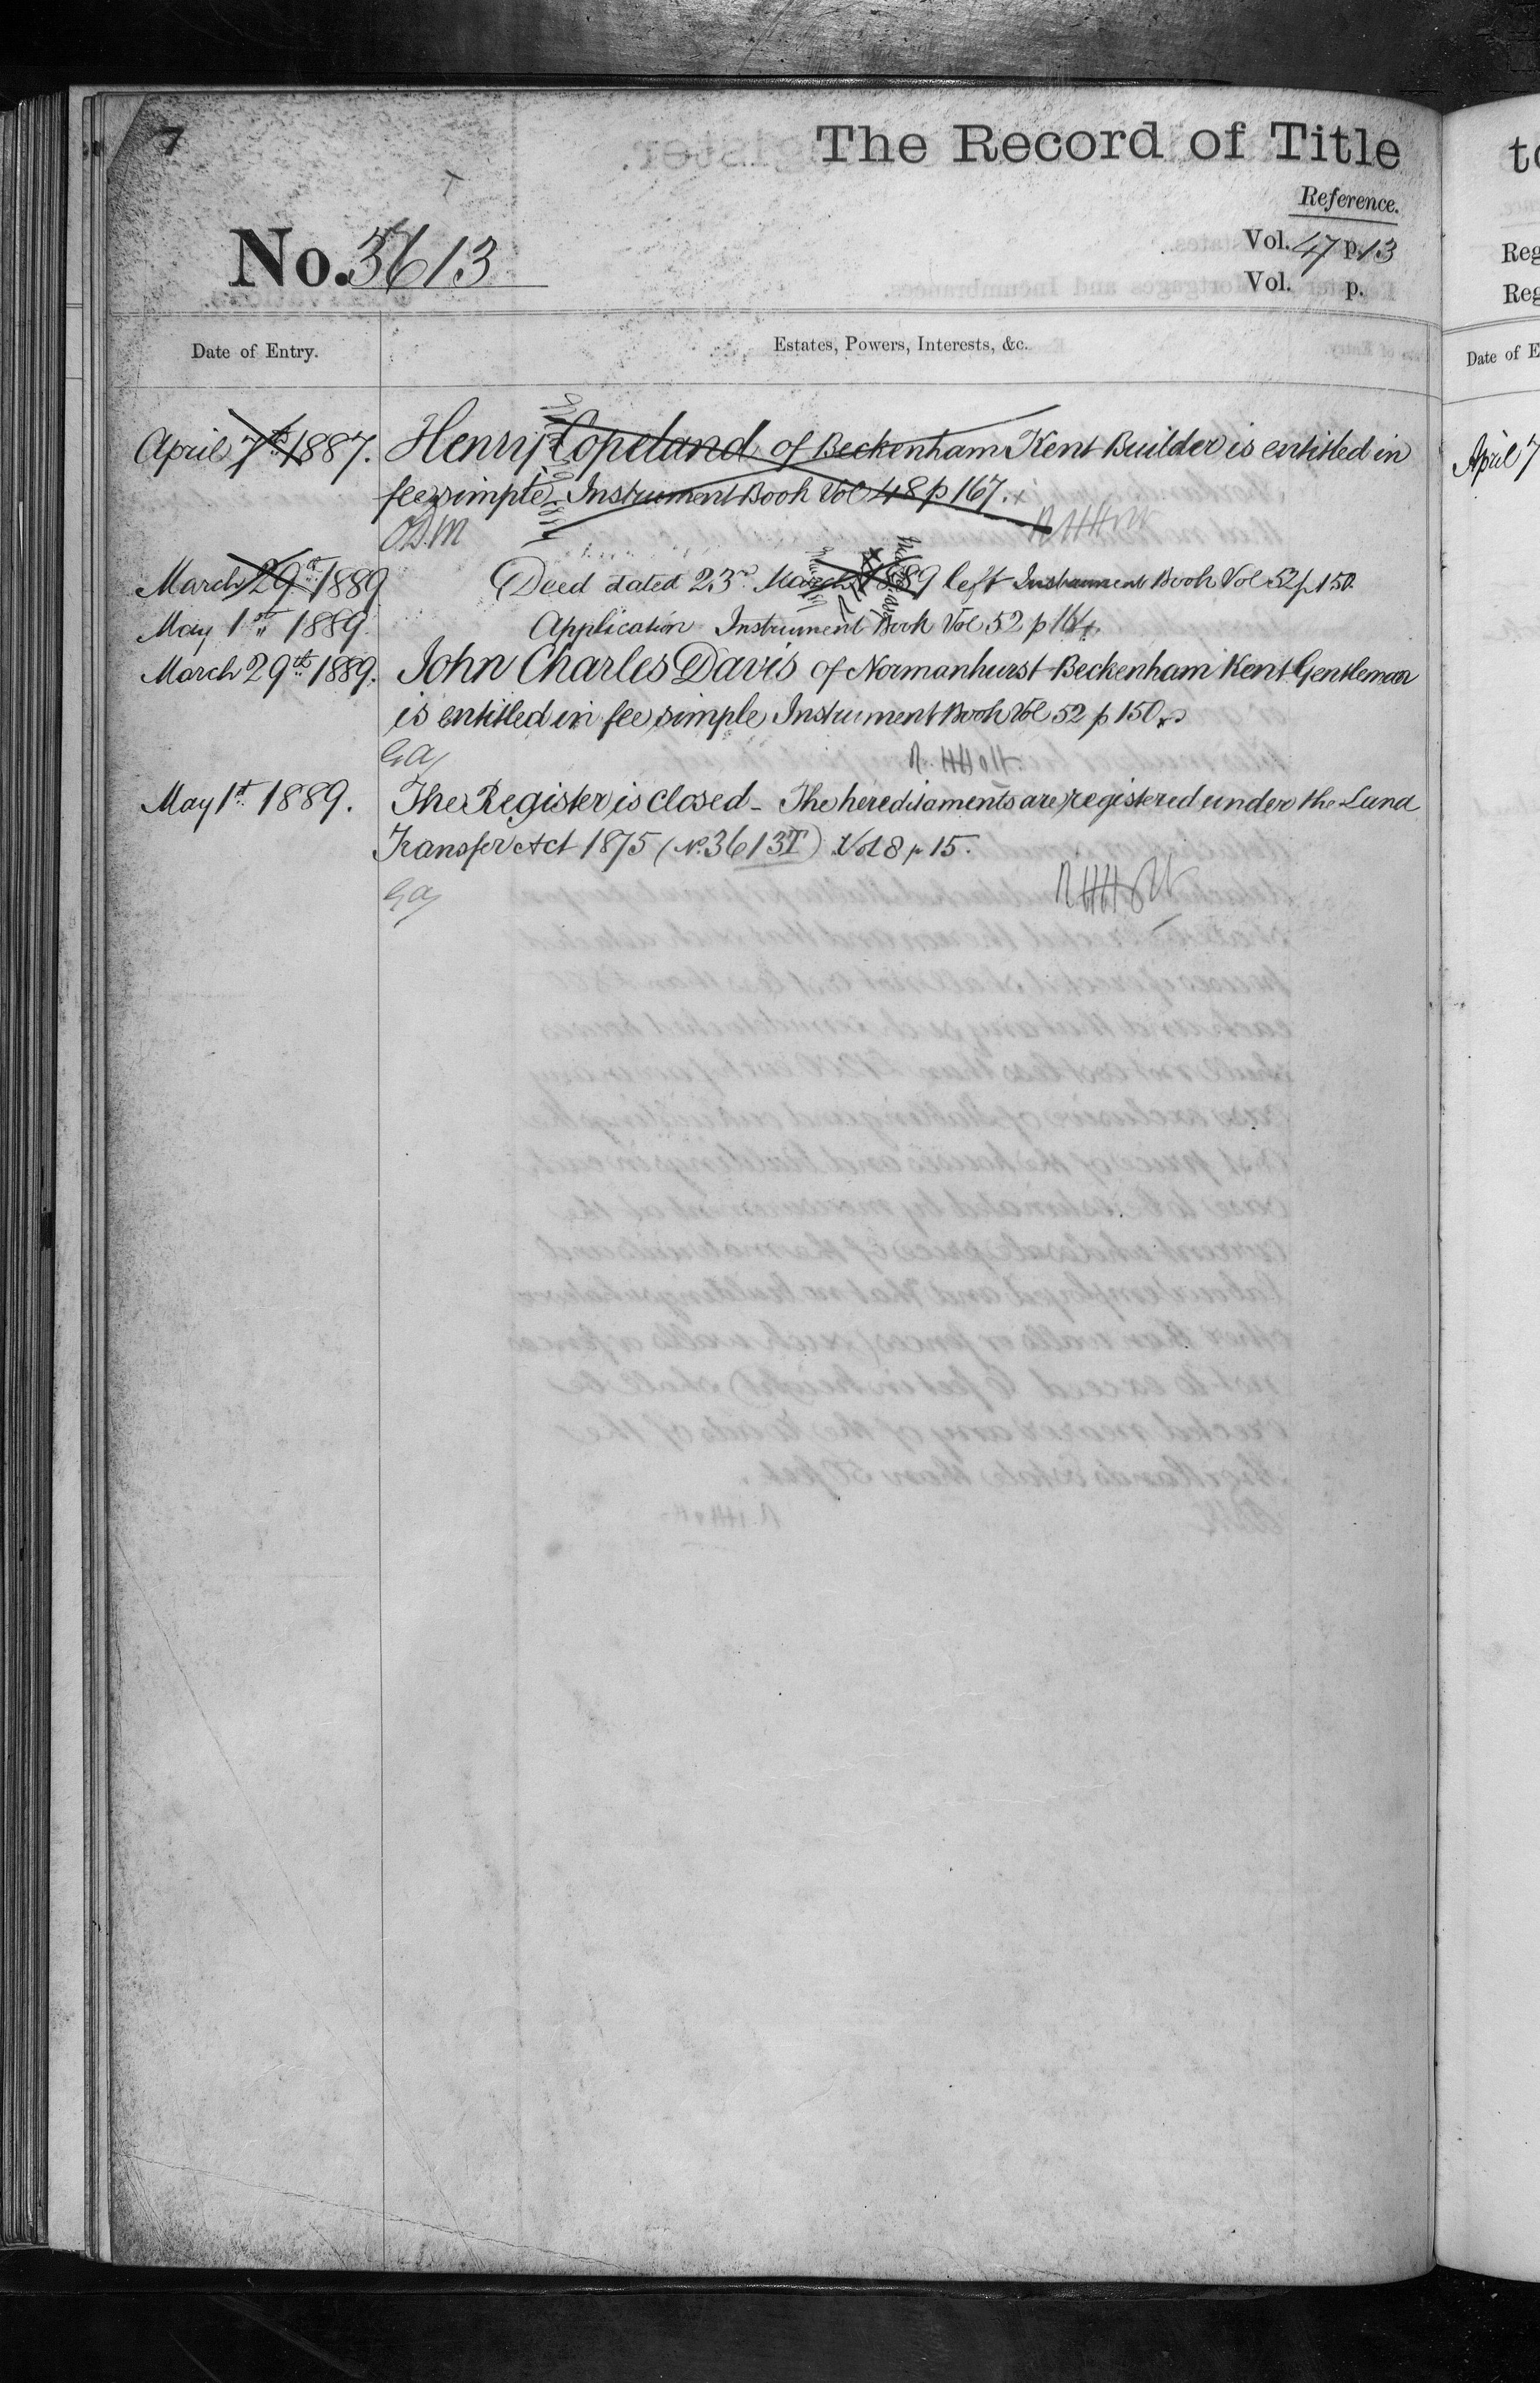 7
The Record of Title
Reference.
No. 3613
Vol. 47 p. 13
Vol. p.
Date of Entry.
Estates, Powers, Interests, &c.
April 7th 1887. Henry Copeland of Beckenham Kent Builder is entitled in
fee simple Instrument Book Vol 48 p 167.
March 29th 1889 Deed dated 23rd March 1889 left Instrument Book Vol 52 p 150.
May 1st 1889. Application Instrument Book Vol 52 p 164.
March 29th 1889. John Charles Davis of Normanhurst Beckenham Kent Gentleman
is entitled in fee simple Instrument Book Vol 52 p 150.
May 1st 1889. The Register is closed - The hereditaments are registered under the Land
Transfer Act 1875 (No. 3613T) Vol 8 p 15.
to
Reg
Reg
Date of E
April 7